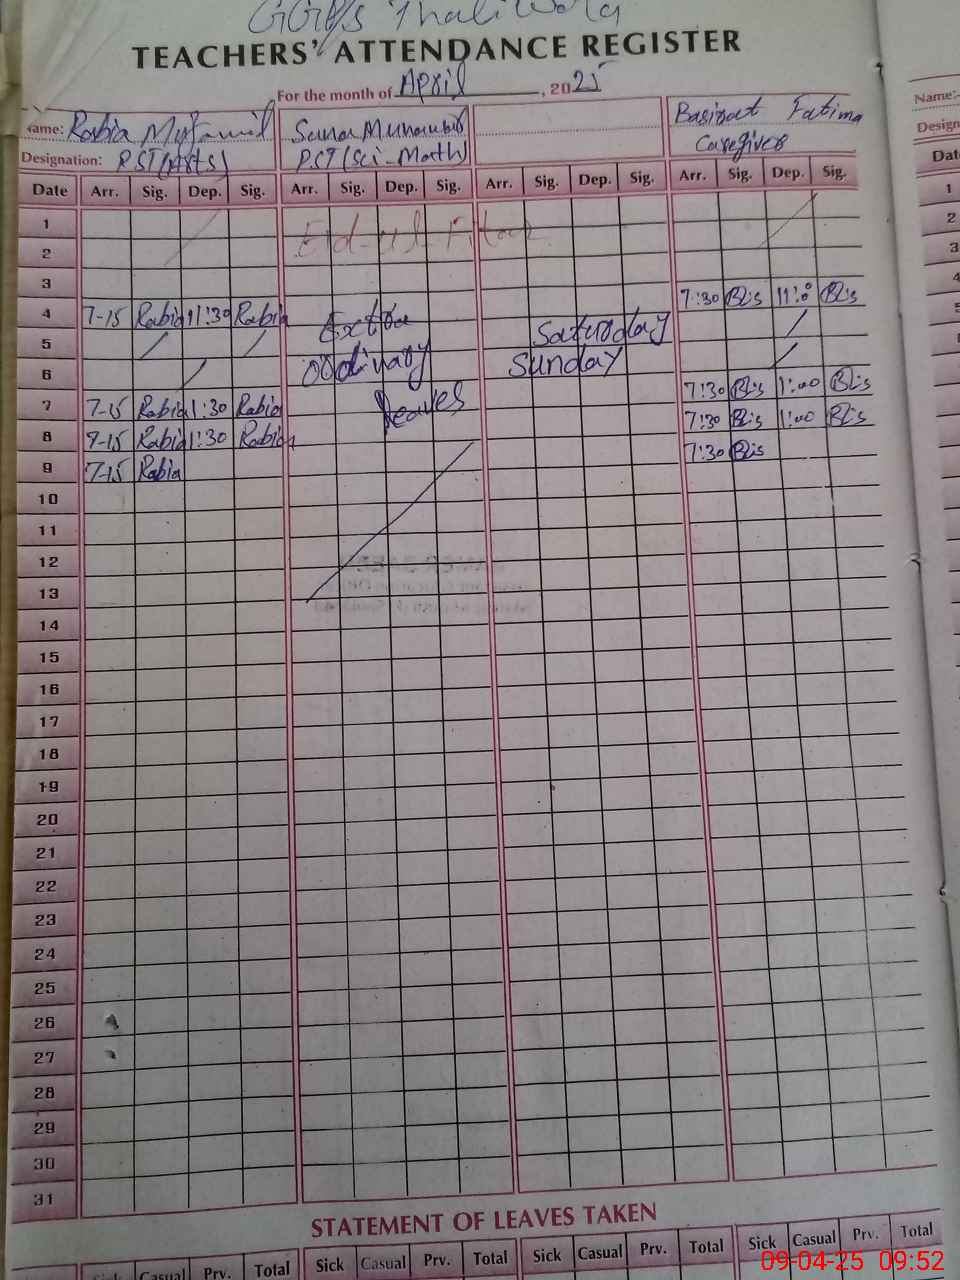 GGPS Thaliwala
TEACHERS' ATTENDANCE REGISTER
For the month of April, 2025
Name: Rabia Muzamil Sana Munawar Basirat Fatima
Designation: PST(Arts) PST(Sci-Math) Caregiver
Name:-
Design
Date Arr. Sig. Dep. Sig. Arr. Sig. Dep. Sig. Arr. Sig. Dep. Sig. Arr. Sig. Dep. Sig. Dat
1 Eid-ul-Fitar 1
2 2
3 3
4 7-15 Rabia 11:30 Rabia Extra 7:30 Bis Bis 4
5 ordinary Saturday 5
6 Leaves Sunday
7 7-15 Rabia 1:30 Rabia 7:30 Bis 1:00 Bis
8 7-15 Rabia 1:30 Rabia 7:30 Bis 1:00 Bis
9 7-15 Rabia 7:30 Bis
10
11
12
13
14
15
16
17
18
19
20
21
22
23
24
25
26
27
28
29
30
31
STATEMENT OF LEAVES TAKEN
Sick Casual Prv. Total Sick Casual Prv. Total Sick Casual Prv. Total Sick Casual Prv. Total
09-04-25 09:52